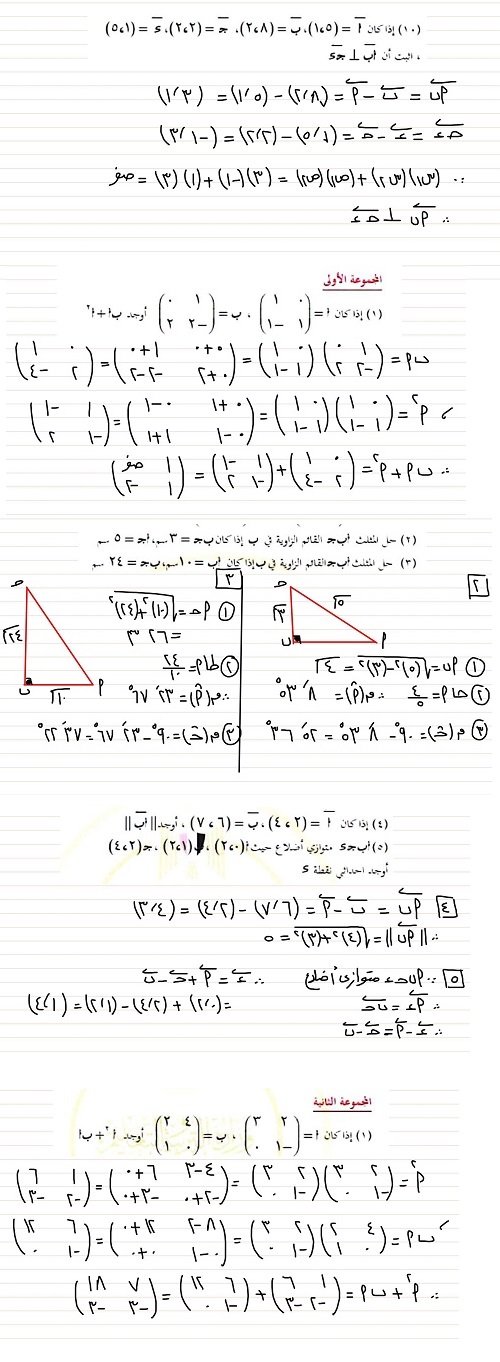 (١٠) إذا كان أ = (١،٥)، ب = (٢،٨)، جـ = (٢،٢)، ء = (٥،١)
، اثبت أن أب ⊥ جـء
أب = ب - أ = (٢،٨) - (١،٥) = (١،٣)
حـء = ء - حـ = (٥،١) - (٢،٢) = (٣،-١)
∴ (س١)(س٢) + (ص١)(ص٢) = (١)(٣) + (٣)(-١) = صفر
∴ أب ⊥ حـء
المجموعة الأولى
(١) إذا كان أ = (٠ ١ / ١ -١) ، ب = (١ ٠ / -٢ ٢) أوجد ب أ + أ٢
ب أ = (١ ٠ / -٢ ٢)(٠ ١ / ١ -١) = (٠+٠ ١+٠ / ٠+٢ -٢-٢) = (٠ ١ / ٢ -٤)
، أ٢ = (٠ ١ / ١ -١)(٠ ١ / ١ -١) = (٠+١ ٠-١ / ٠-١ ١+١) = (١ -١ / -١ ٢)
∴ ب أ + أ٢ = (٠ ١ / ٢ -٤) + (١ -١ / -١ ٢) = (١ صفر / ١ -٢)
(٢) حل المثلث أب جـ القائم الزاوية في ب إذا كان ب جـ = ٣ سم، أجـ = ٥ سم
(٣) حل المثلث أب جـ القائم الزاوية في ب إذا كان أب = ١٠ سم، ب جـ = ٢٤ سم
٢
حـ ٣ ٥ ب أ
① أب = √(٥)٢-(٣)٢ = ٤
② جا أ = ٤/٥ ∴ ق(أ) = ٨ ٥٣°
③ ق(حـ) = ٩٠° - ٨ ٥٣° = ٥٢ ٣٦°
٣
حـ ٢٤ ب ١٠ أ
① أحـ = √(١٠)٢+(٢٤)٢
= ٢٦
② طا أ = ٢٤/١٠
∴ ق(أ) = ٢٣ ٦٧°
③ ق(حـ) = ٩٠° - ٢٣ ٦٧° = ٣٧ ٢٢°
(٤) إذا كان أ = (٤،٢)، ب = (٧،٦) ، أوجد || أب ||
(٥) أب جـ ء متوازي أضلاع حيث أ(٢،٠)، ب(٢،١)، جـ(٤،٢)
أوجد احداثي نقطة ء
٤ أب = ب - أ = (٧/٦) - (٤/٢) = (٣/٤)
∴ || أب || = √(٤)٢+(٣)٢ = ٥
٥ ∵ أب حـ ء متوازى أضلاع
∴ أء = ب حـ
∴ ء - أ = حـ - ب
∴ ء = أ + حـ - ب
= (٢/٠) + (٤/٢) - (٢/١) = (٤/١)
المجموعة الثانية
(١) إذا كان أ = (٢ ٣ / -١ ٠) ، ب = (٤ ٢ / ٠ ١) أوجد أ٢ + ب أ
أ٢ = (٢ ٣ / -١ ٠)(٢ ٣ / -١ ٠) = (٤-٣ ٦+٠ / -٢+٠ -٣+٠) = (١ ٦ / -٢ -٣)
، ب أ = (٤ ٢ / ٠ ١)(٢ ٣ / -١ ٠) = (٨-٢ ١٢+٠ / ٠-١ ٠+٠) = (٦ ١٢ / -١ ٠)
∴ أ٢ + ب أ = (١ ٦ / -٢ -٣) + (٦ ١٢ / -١ ٠) = (٧ ١٨ / -٣ -٣)